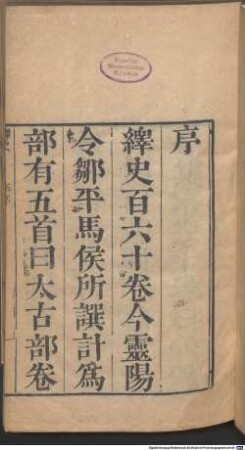 序
繹史百六十卷今靈陽
令鄒平馬侯所譔計為
部有五首曰太古部卷